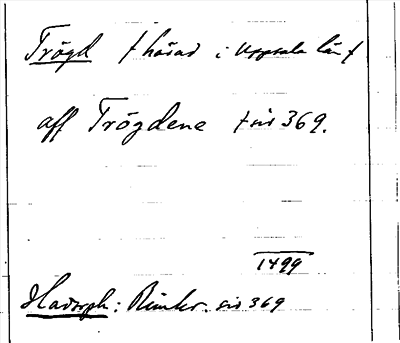 Trögd † härad i Uppsala län †
aff Trögdene † sid 369.
1499
Hadorph: Rimkr. sid 369